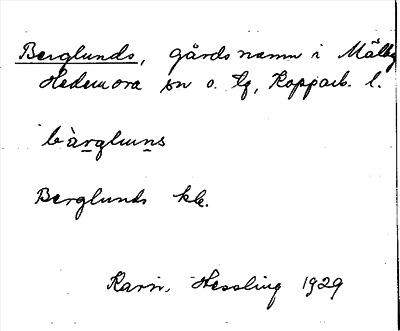 Berglunds, gårdsnamn i Mälby
Hedemora sn o. tg, Kopparb. l.
bàrgluns
Berglunds kk.
Karin Hessling 1929